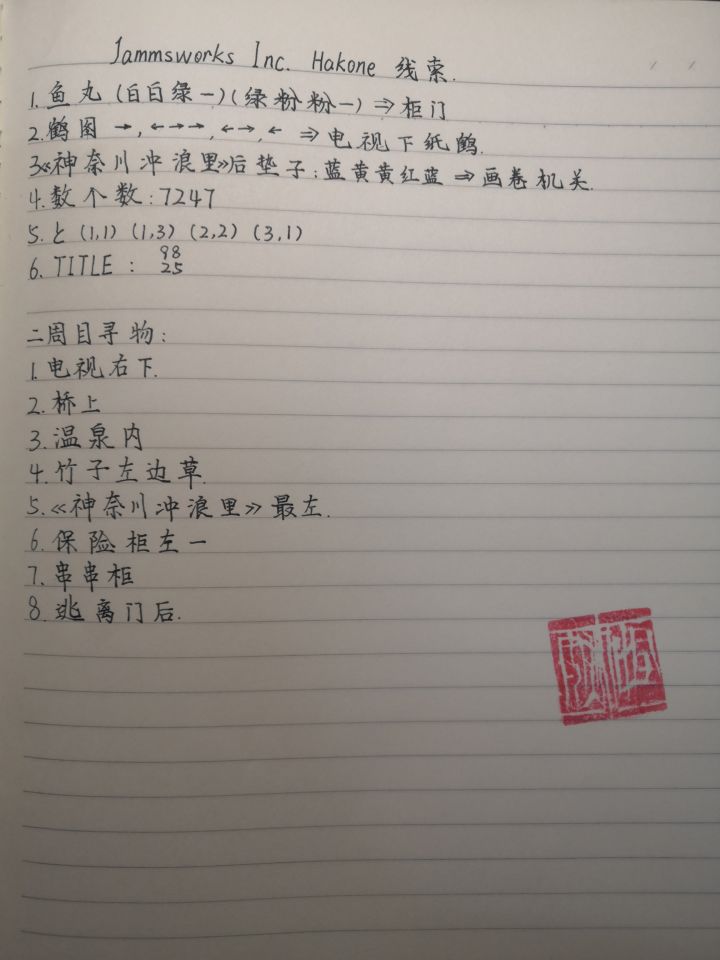 Jammsworks Inc. Hakone 线索.
1.鱼丸(白白绿一)(绿粉粉一)⇒柜门
2.鹤图 →,←→→,←→,← ⇒电视下纸鹤.
3.《神奈川冲浪里》后垫子:蓝黄黄红蓝⇒画卷机关.
4.数个数:7247
5.と(1,1)(1,3)(2,2)(3,1)
6.TITLE: 98
25
二周目寻物:
1.电视右下.
2.桥上
3.温泉内
4.竹子左边草.
5.《神奈川冲浪里》最左.
6.保险柜左一
7.串串柜
8.逃离门后.